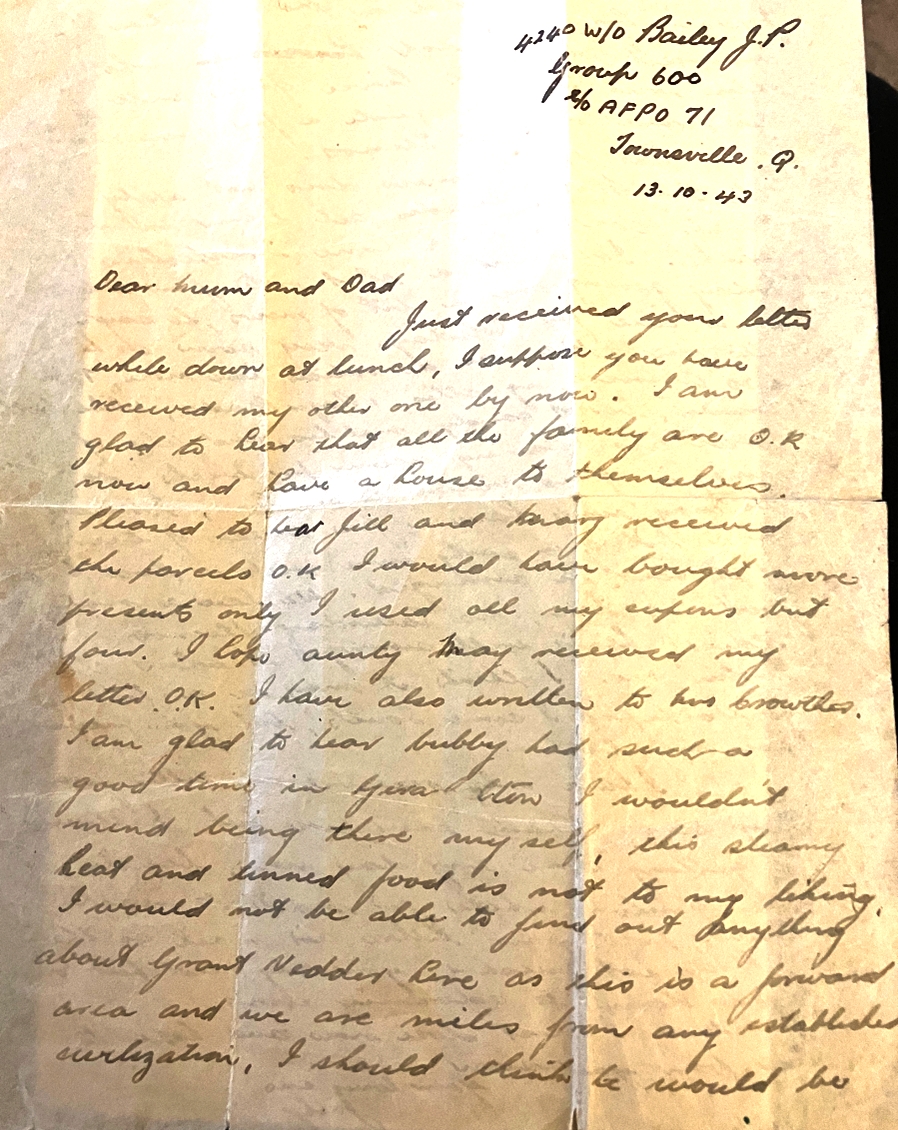 4240 W/O Bailey J.P.
Group 600
c/o AFPO 71
Townsville. Q.
13-10-43
Dear Mum and Dad
Just received your letter
while down at lunch, I suppose you have
received my other one by now. I am
glad to hear that all the family are O.K
now and have a house to themselves.
Pleased to hear Jill and received
the parcels O.K I would have bought more
presents only I used all my cupons but
four. I hope aunty May received my
letter O.K. I have also written to
I am glad to hear bubby had such a
good time in I wouldn't
mind being there myself, this steamy
heat and tinned food is not to my liking.
I would not be able to find out anything
about Grant Vedder here as this is a forward
area and we are miles from any established
I should think he would be